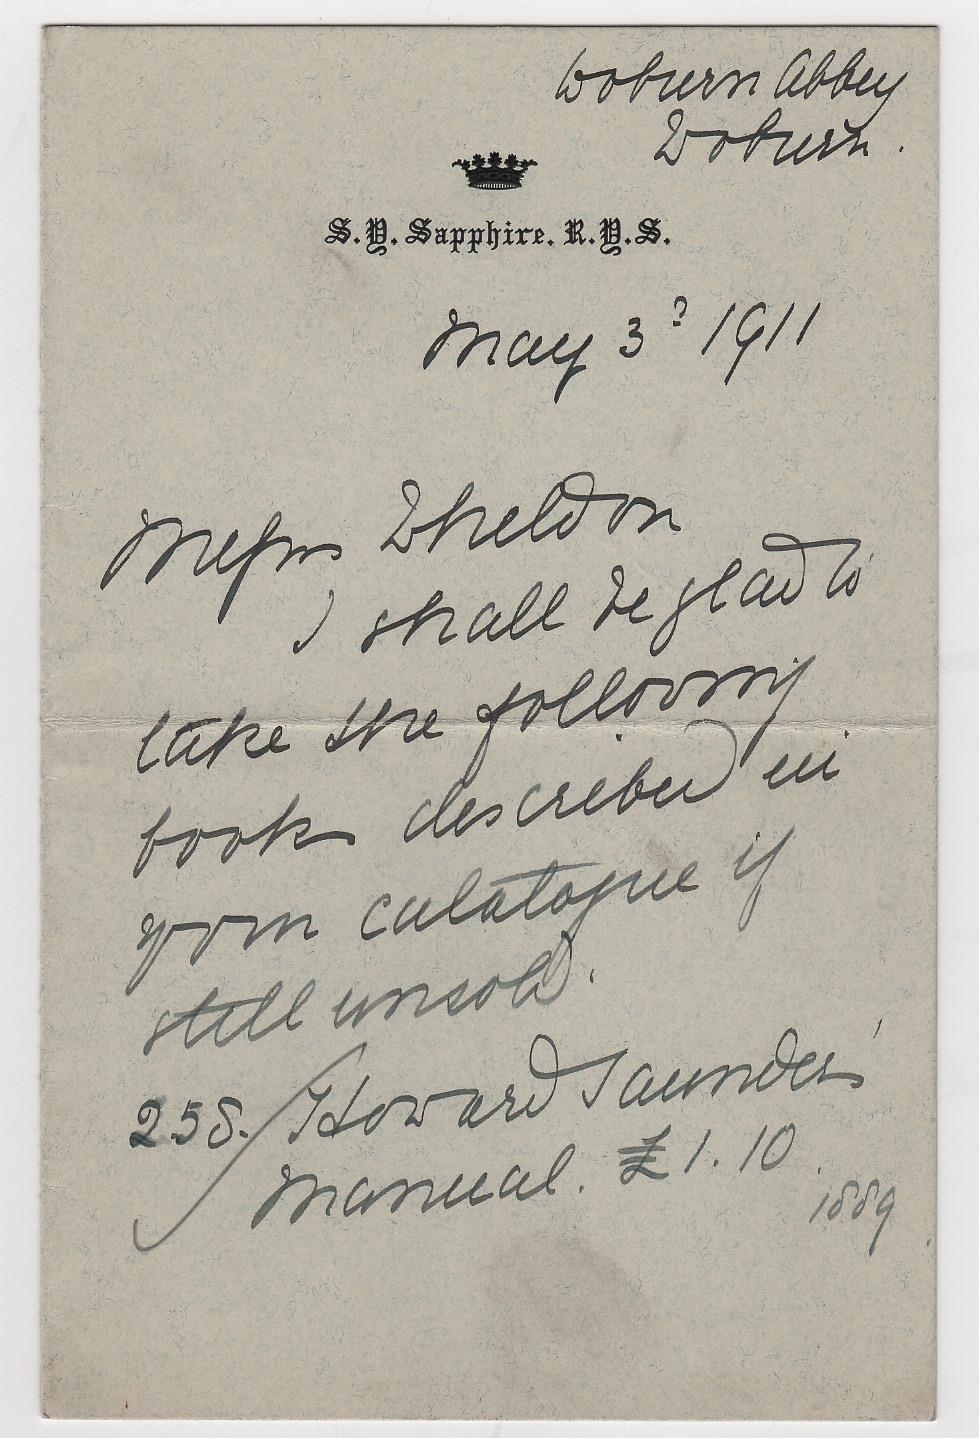 Woburn Abbey
Woburn.
S.Y. Sapphire. R.Y.S.
May 3d 1911
Messrs Wheldon
I shall be glad to
take the following
books described in
your catalogue if
still unsold.
258. Howard Saunders'
Manual. £1.10.
1889